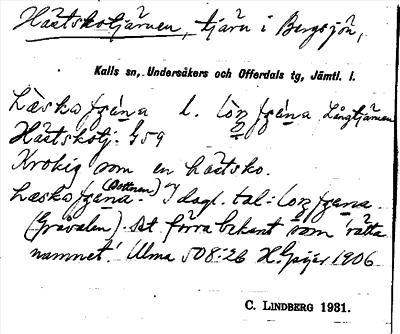 Hästskotjärnen, tjärn i Bergsjön,
Kalls sn, Undersåkers och Offerdals tg, Jämtl. l.
l. Långtjärnen
Hästskotj. G59
Krokig som en hästsko.
(Bottnen) I dagl. tal:
(Gråvalen). Det förra bekant som 'rätta
namnet'. Ulma 508:26 H. Geijer 1906
C. LINDBERG 1931.